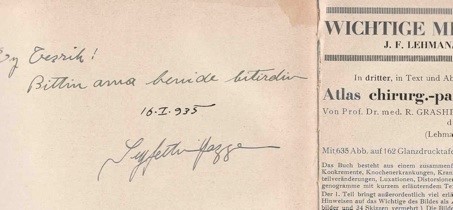 Ey Tesrih!
Bittin ama benide bitirdin
16-I-935
Seyfettin
WICHTIGE ME
J. F. LEHMAN
In dritter, in Text und Ab
Atlas chirurg.-pa
Von Prof. Dr. med. R. GRASHE
d
(Lehma
Mit 635 Abb. auf 162 Glanzdrucktafe
Das Buch besteht aus einem zusammenf
Konkremente, Knochenerkrankungen, Kran
teilveränderungen, Luxationen, Distorsione
genogramme mit kurzem erläuternden Tex
Der 1. Teil bringt außerordentlich viel erlä
Hinweisen auf das Wichtige des Bildes als
bilder und 34 Skizzen vermehrt.) Die Bil